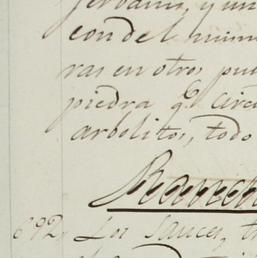 con del mism
ras en otro, pue
piedra q.e circ
arbolitos, todo
Ranch
692, Los Sauces, t